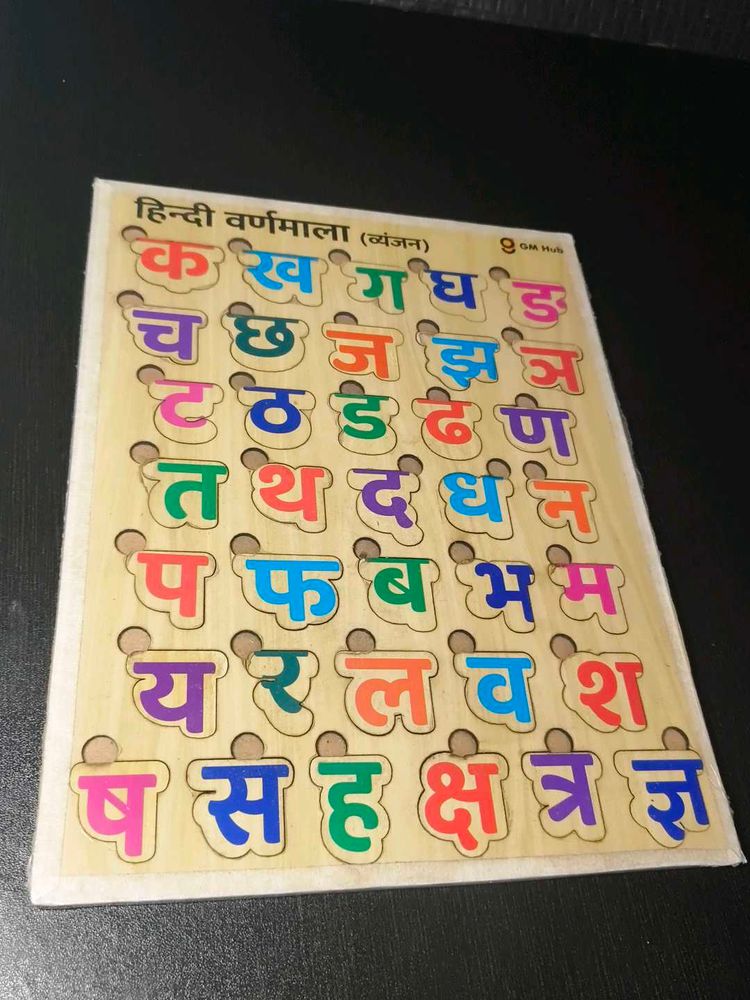 हिन्दी वर्णमाला (व्यंजन) GM Hub
क ख ग घ ङ
च छ ज झ ञ
ट ठ ड ढ ण
त थ द ध न
प फ ब भ म
य र ल व श
ष स ह क्ष त्र ज्ञ